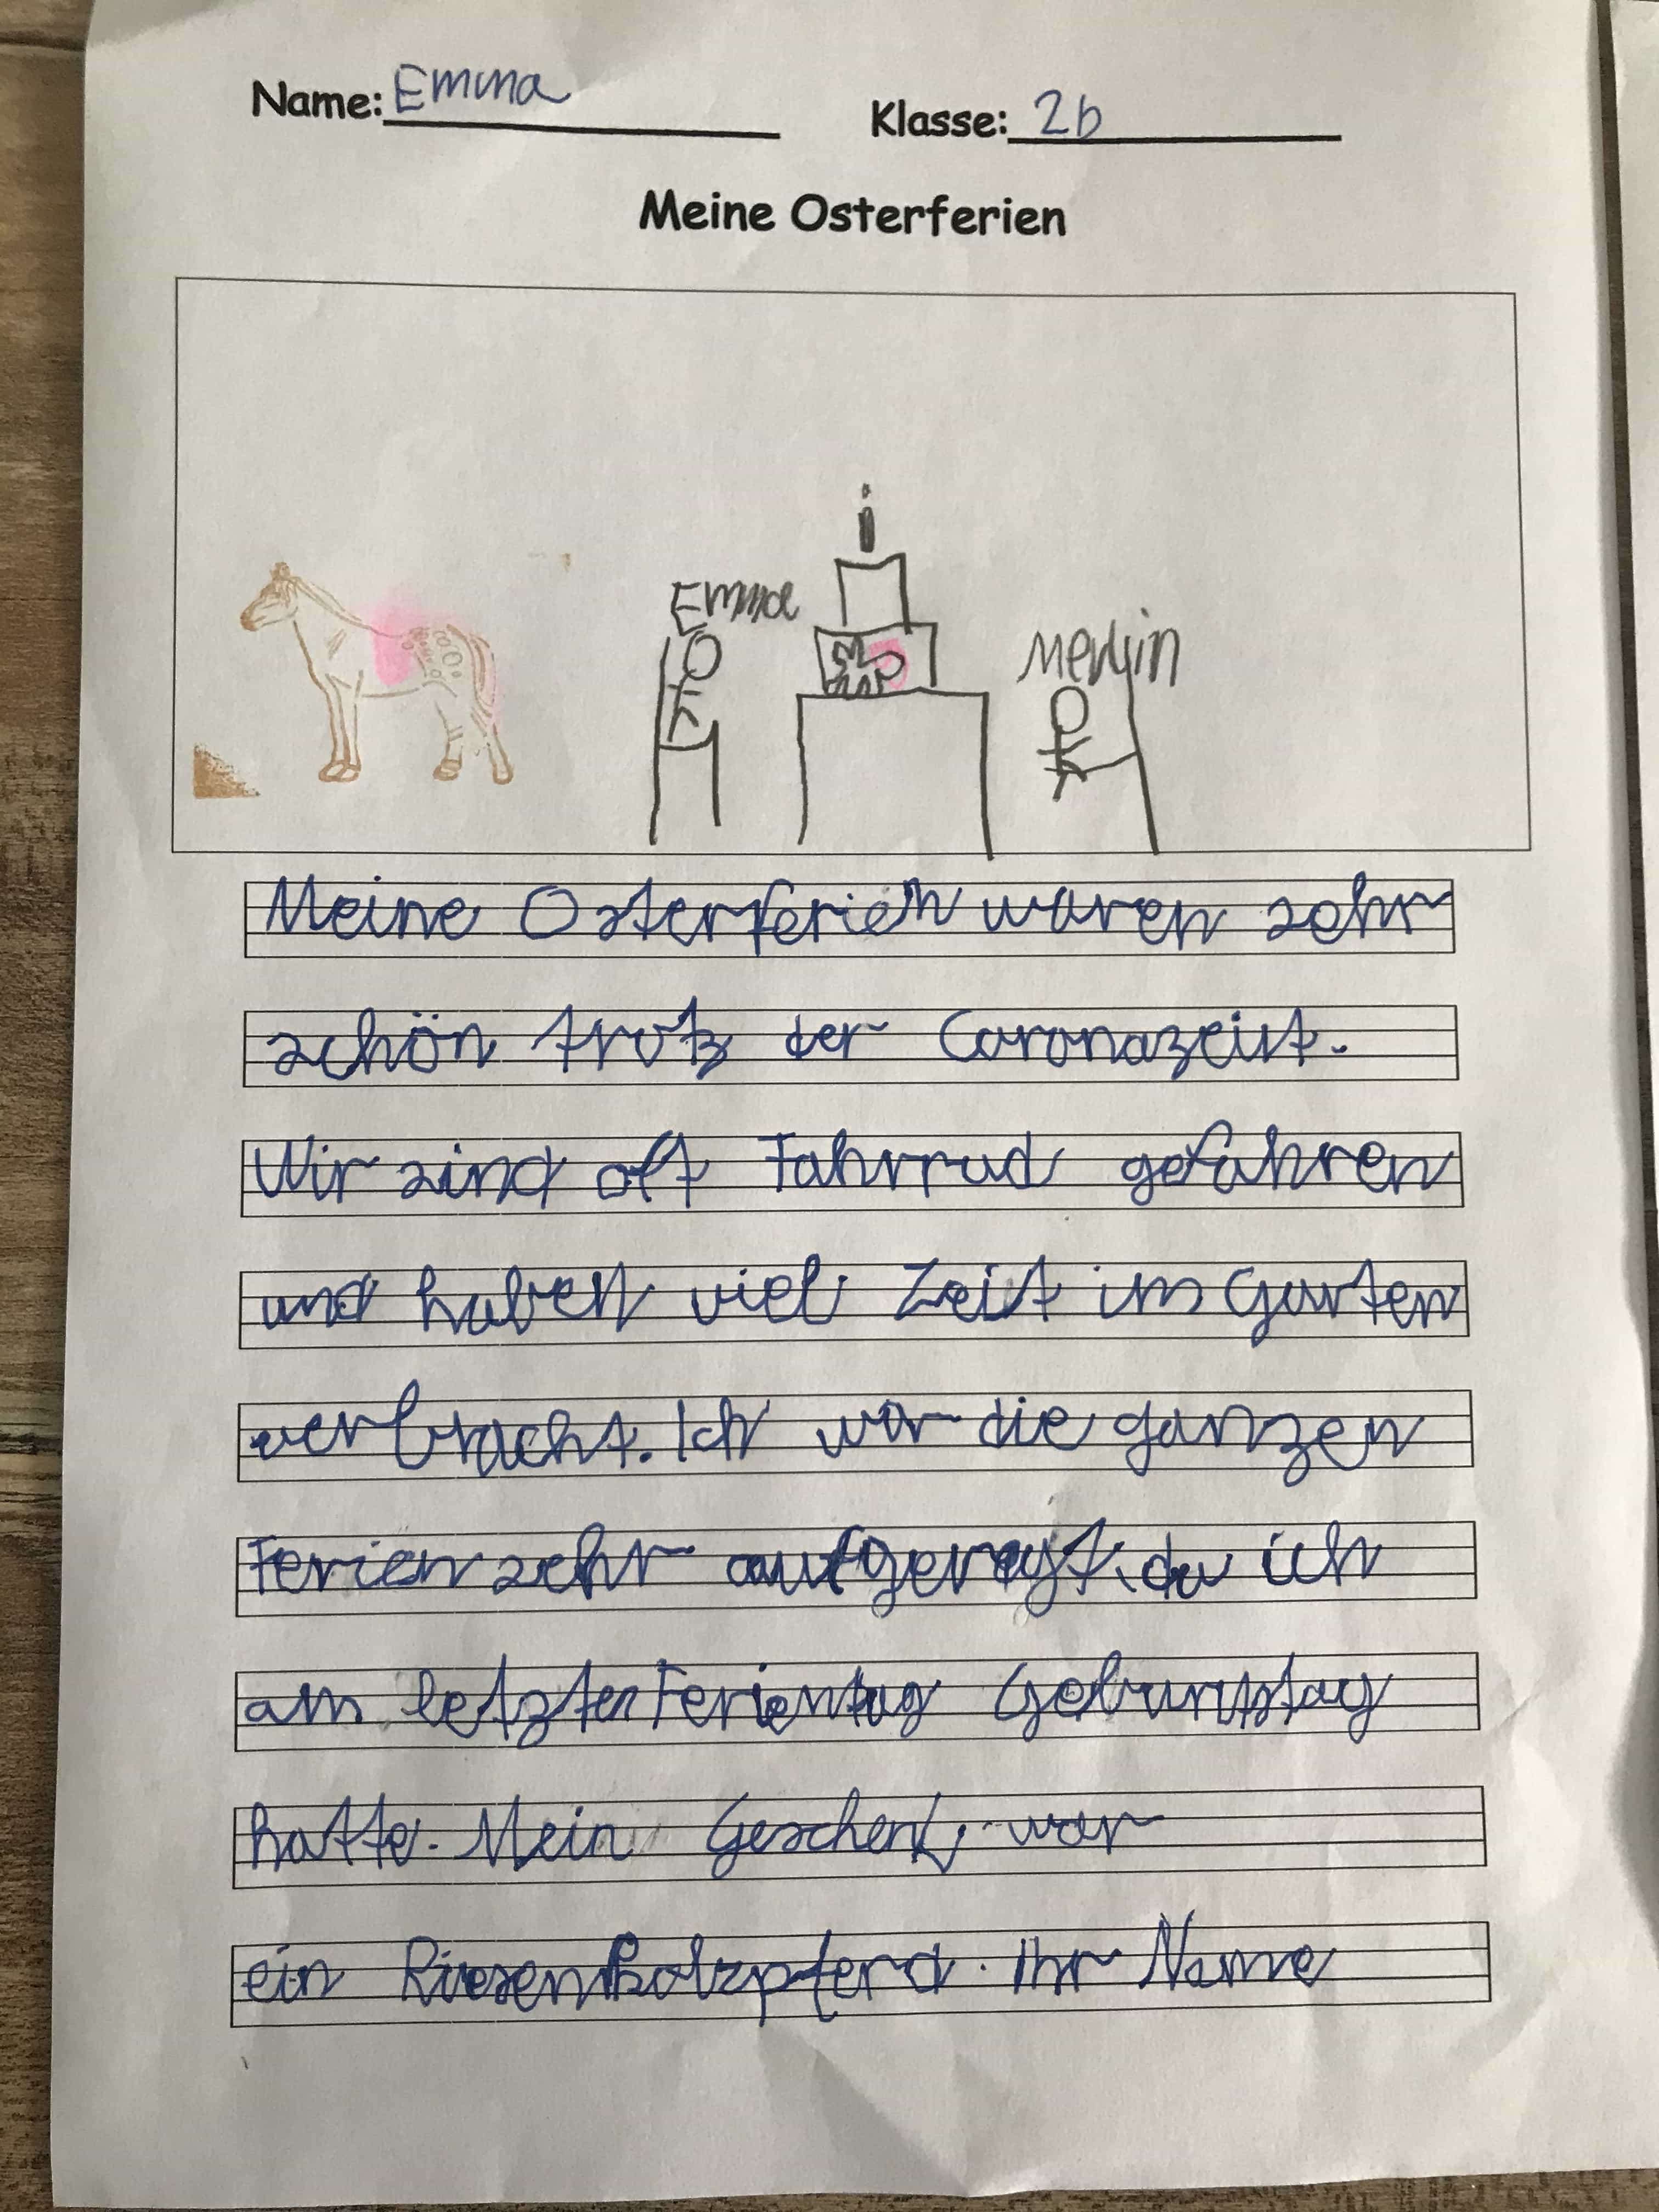 Name: Emma Klasse: 2b
Meine Osterferien
Emma
Merlin
Meine Osterferien waren sehr
schön trotz der Coronazeit.
Wir sind oft Fahrrad gefahren
und haben viel Zeit im Garten
verbracht. Ich war die ganzen
Ferien sehr aufgeregt, da ich
am letzten Ferientag Geburtstag
hatte. Mein Geschenk war
ein Riesenholzpferd. Ihr Name